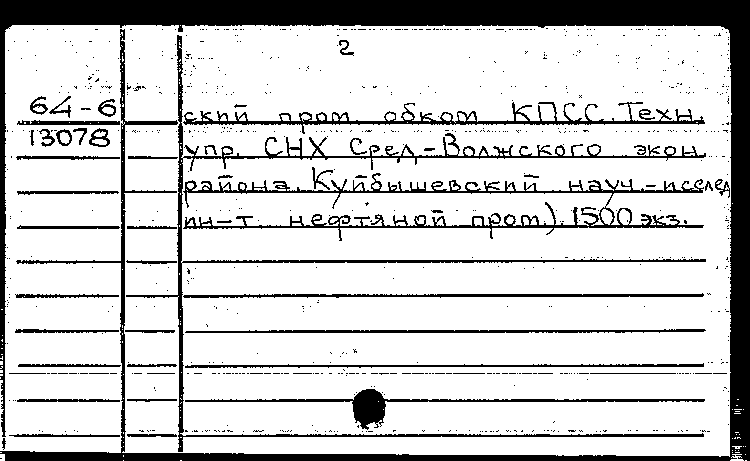 2
64-6
13078
ский пром. обком КПСС. Техн.
упр. СНХ Сред.-Волжского экон.
района. Куйбышевский науч.-исслед.
ин-т. нефтяной пром.). 1500 экз.